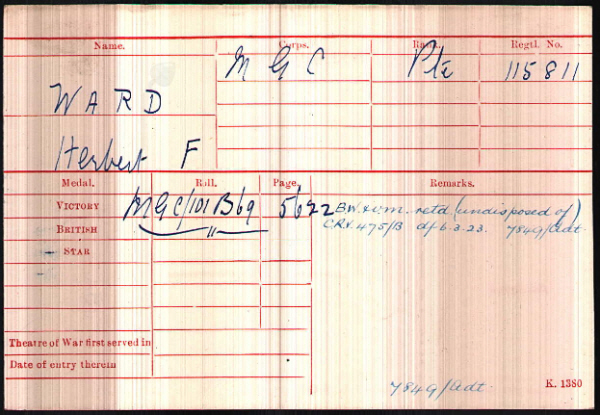 Name. Corps. Rank. Regtl. No.
M G C Pte 115811
WARD
Herbert F
Medal. Roll. Page. Remarks.
VICTORY MGC/101 B69 5622 B.W. & V.M. retd. (undisposed of)
BRITISH " C.R.V. 475/B d/- 6.3.23. 7849/Adt.
STAR
Theatre of War first served in
Date of entry therein
7849/Adt. K. 1380